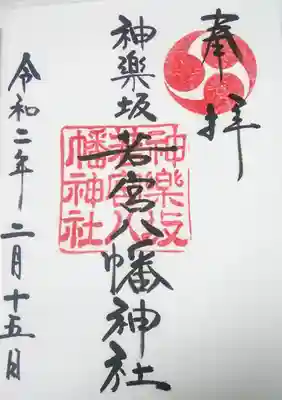 奉拝
神楽坂
若宮八幡神社
神楽坂
若宮八
幡神社
令和二年二月十五日